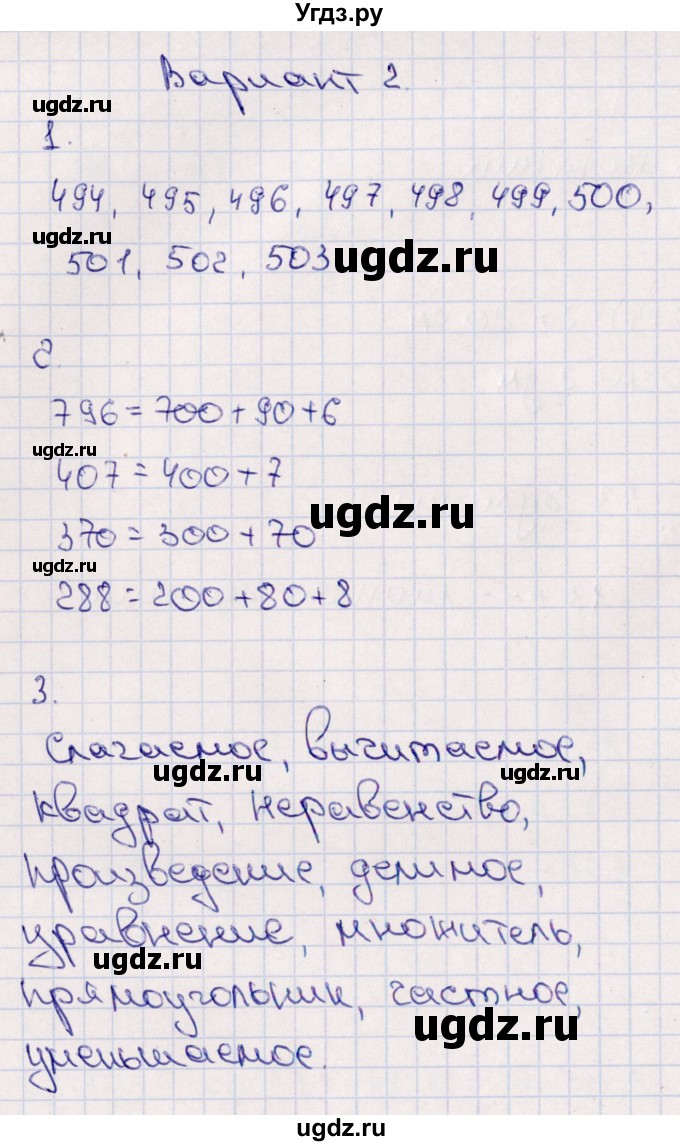 Угдз.ру
Вариант 2.
ugdz.ru
1.
494, 495, 496, 497, 498, 499, 500,
ugdz.ru
501, 502, 503
ugdz.ru
2.
796 = 700 + 90 + 6
ugdz.ru
407 = 400 + 7
ugdz.ru
370 = 300 + 70
ugdz.ru
288 = 200 + 80 + 8
3.
Слагаемое, вычитаемое,
ugdz.ru
ugdz.ru
квадрат, неравенство,
произведение, делимое,
уравнение, множитель,
ugdz.ru
прямоугольник, частное,
ugdz.ru
уменьшаемое.
ugdz.ru